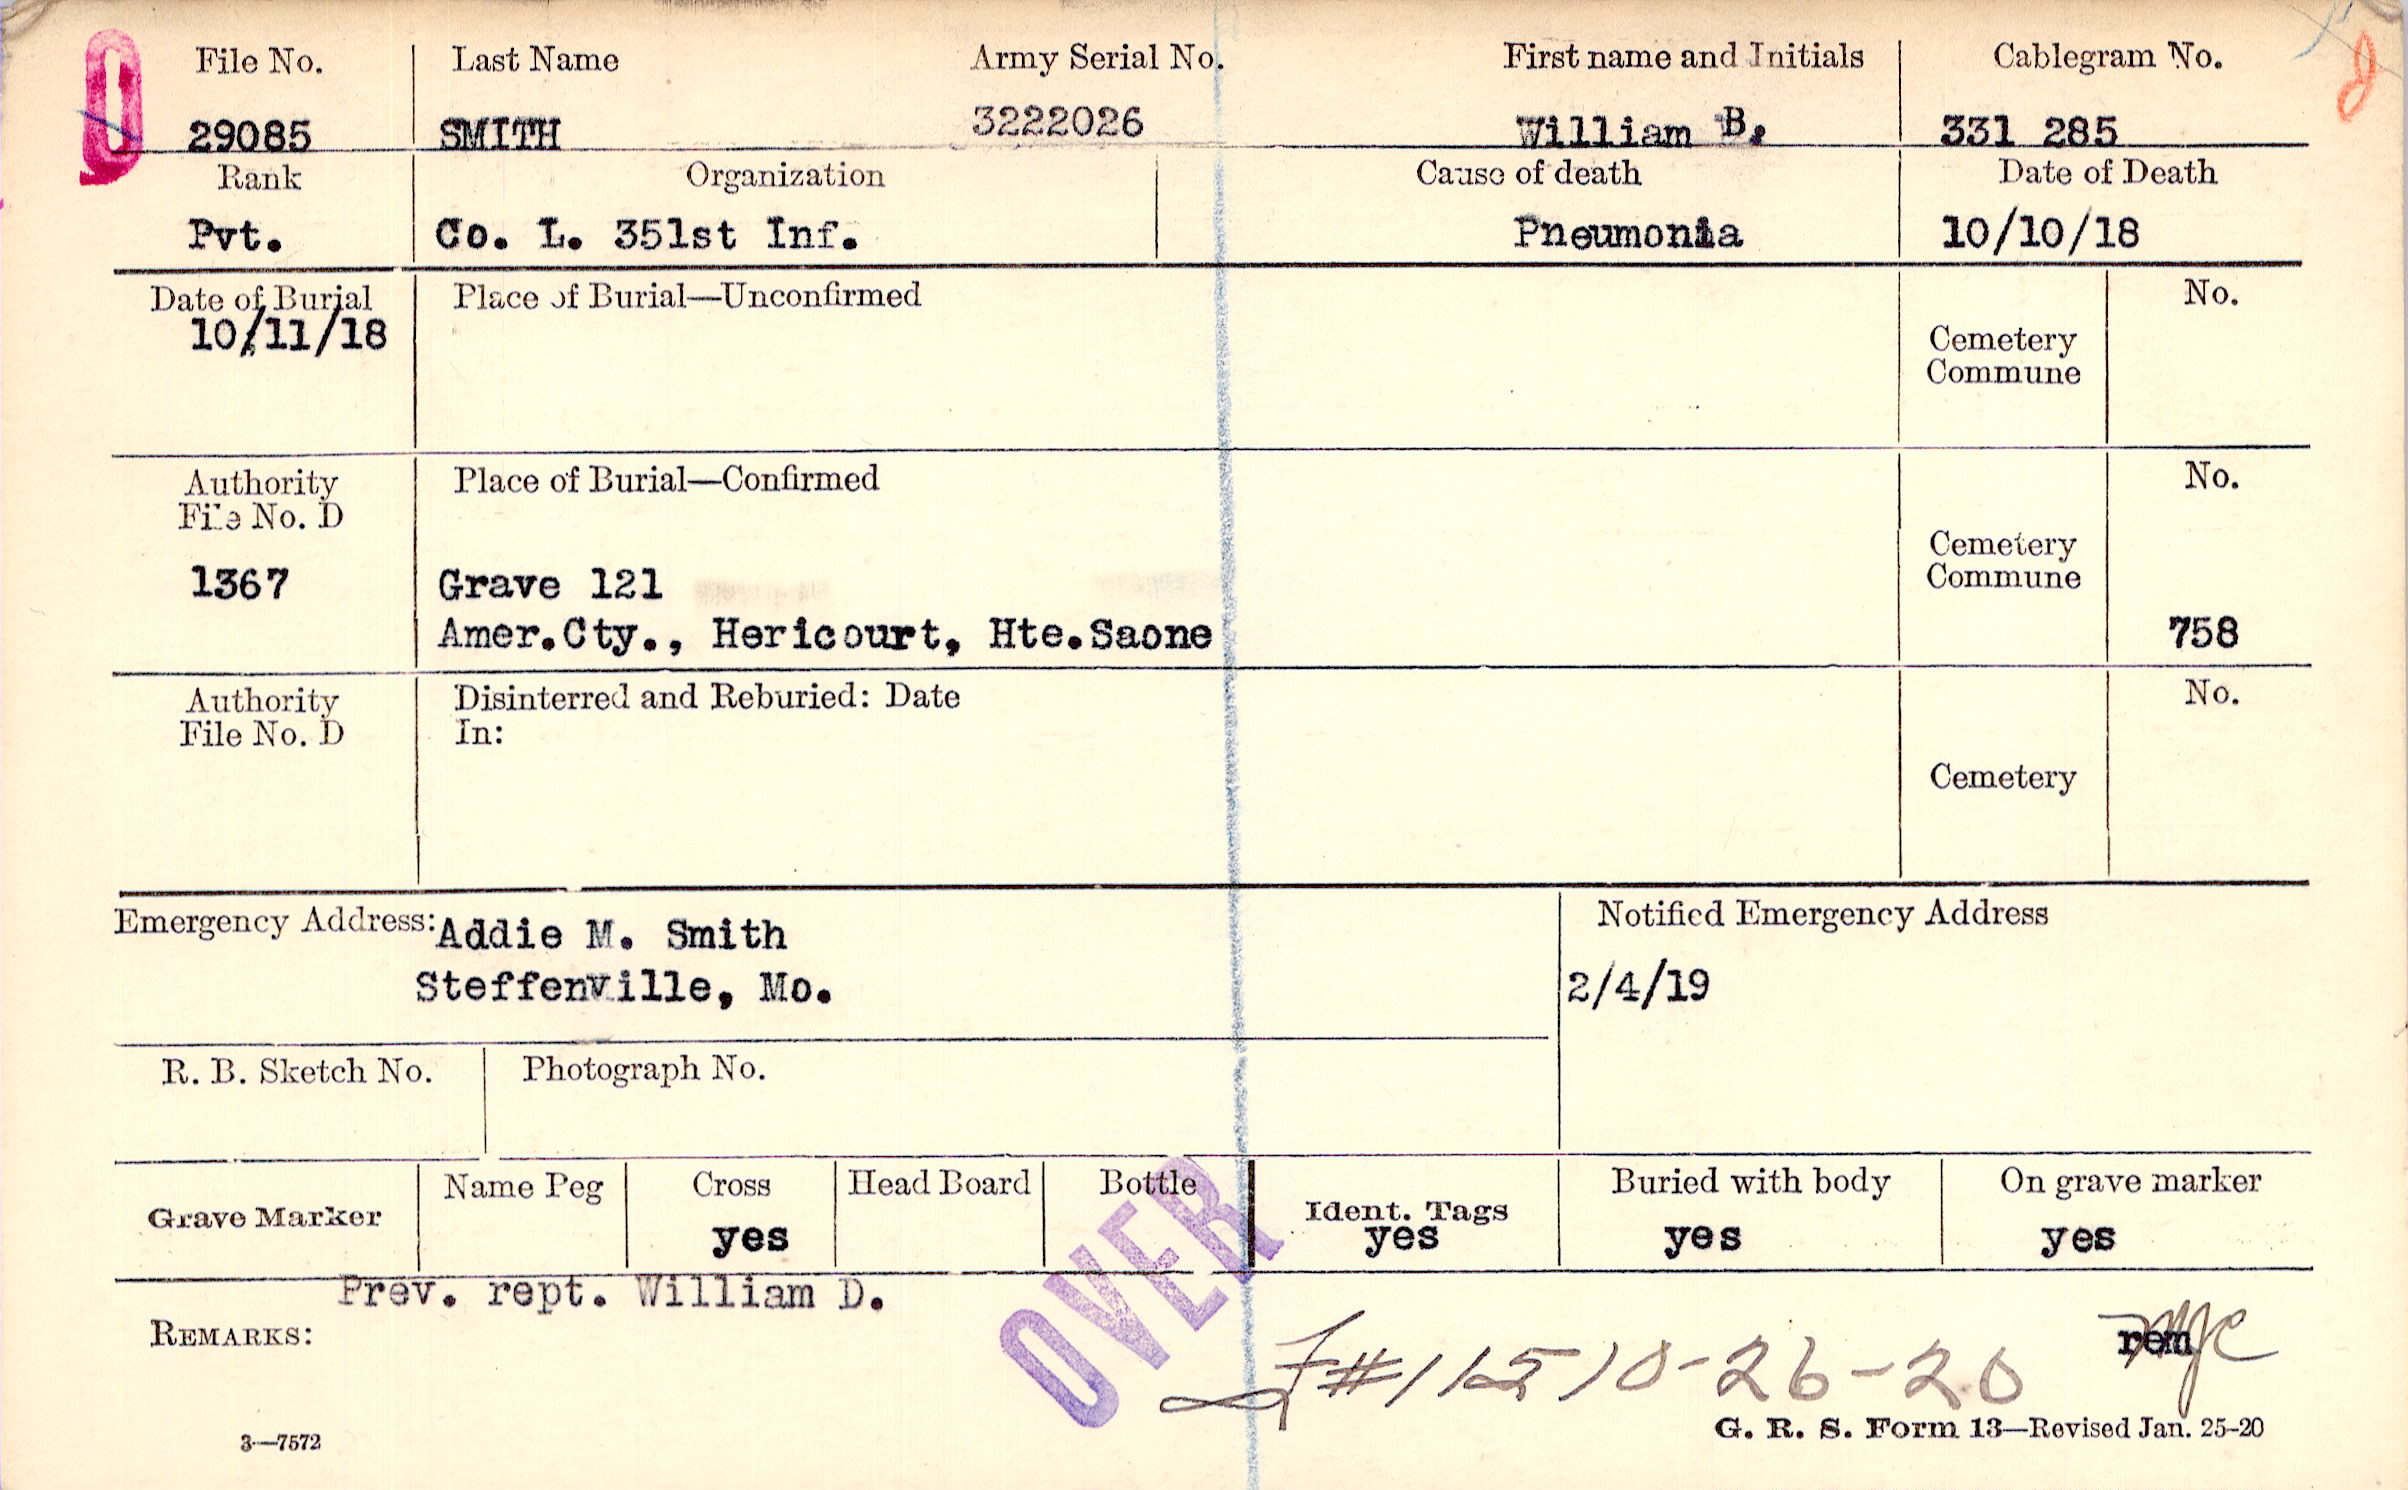 File No. Last Name Army Serial No. First name and Initials Cablegram No.
29085 SMITH 3222026 William B. 331 285
Rank Organization Cause of death Date of Death
Pvt. Co. L. 351st Inf. Pneumonia 10/10/18
Date of Burial Place of Burial—Unconfirmed No.
10/11/18
Cemetery
Commune
Authority Place of Burial—Confirmed No.
File No. D
Cemetery
Commune
1367 Grave 121
Amer.Cty., Hericourt, Hte.Saone 758
Authority Disinterred and Reburied: Date No.
File No. D In:
Cemetery
Emergency Address: Addie M. Smith Notified Emergency Address
Steffenville, Mo. 2/4/19
R. B. Sketch No. Photograph No.
Grave Marker Name Peg Cross Head Board Bottle Ident. Tags Buried with body On grave marker
yes yes yes yes
OVER
Prev. rept. William D.
REMARKS:
#115 10-26-20 rem
3—7572 G. R. S. Form 13—Revised Jan. 25-20